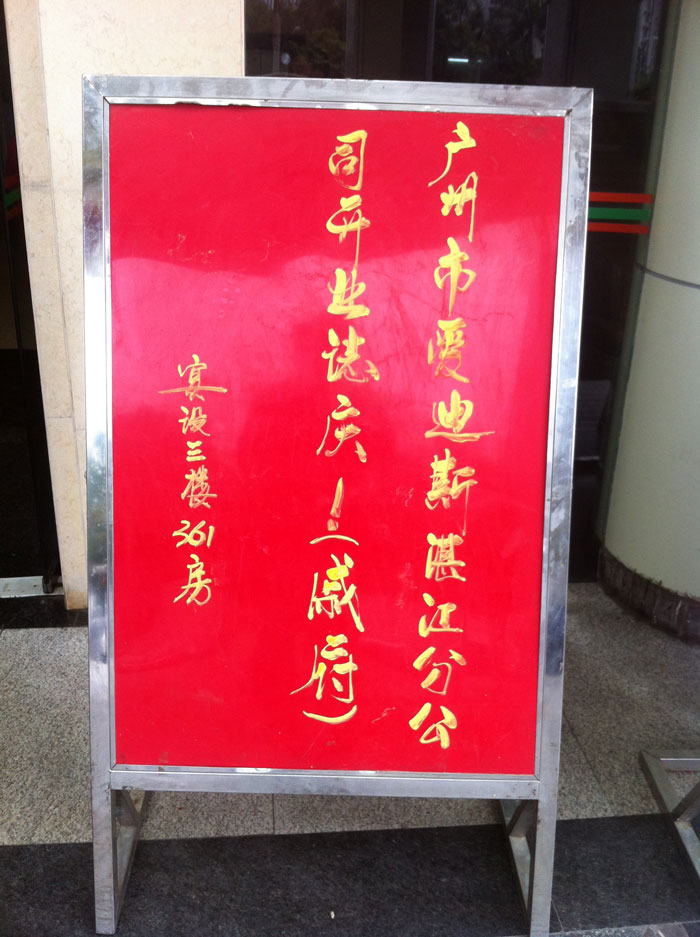 广州市爱迪斯湛江分公
司开业誌庆！（戚府）
宴设三楼361房